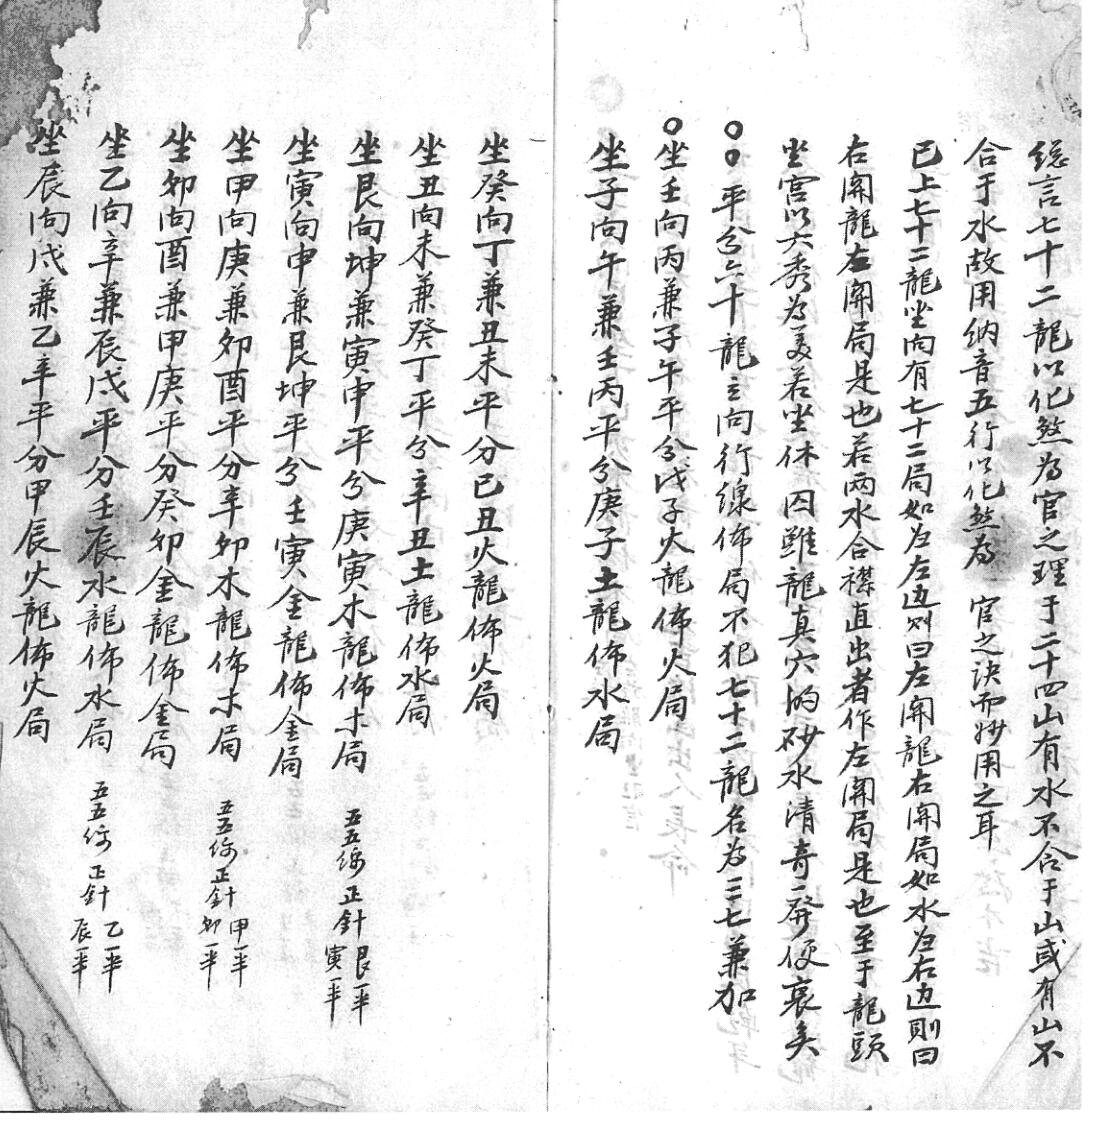 總言七十二龍以化煞為官之理于二十四山有水不合于山或有山不
合于水故用納音五行以化煞為 官之訣而妙用之耳
已上七十二龍坐向有七十二局如為左边則曰左開龍右開局如水為右边則曰
右開龍左開局是也若两水合襟直出者作左開局是也至于龍頭
坐宫以六秀為美若坐休囚雖龍真穴的砂水清奇一發便衰矣
平分六十龍立向行線佈局不犯七十二龍名為三七兼加
坐壬向丙兼子午平分戊子火龍佈火局
坐子向午兼壬丙平分庚子土龍佈水局
坐癸向丁兼丑未平分己丑火龍佈火局
坐丑向未兼癸丁平分辛丑土龍佈水局
坐艮向坤兼寅申平分庚寅木龍佈木局 五五 正針 艮一半 寅一半
坐寅向申兼艮坤平分壬寅金龍佈金局
坐甲向庚兼卯酉平分辛卯木龍佈木局 五五 正針 甲一半 卯一半
坐卯向酉兼甲庚平分癸卯金龍佈金局
坐乙向辛兼辰戌平分壬辰水龍佈水局 五五 正針 乙一半 辰一半
坐辰向戌兼乙辛平分甲辰火龍佈火局